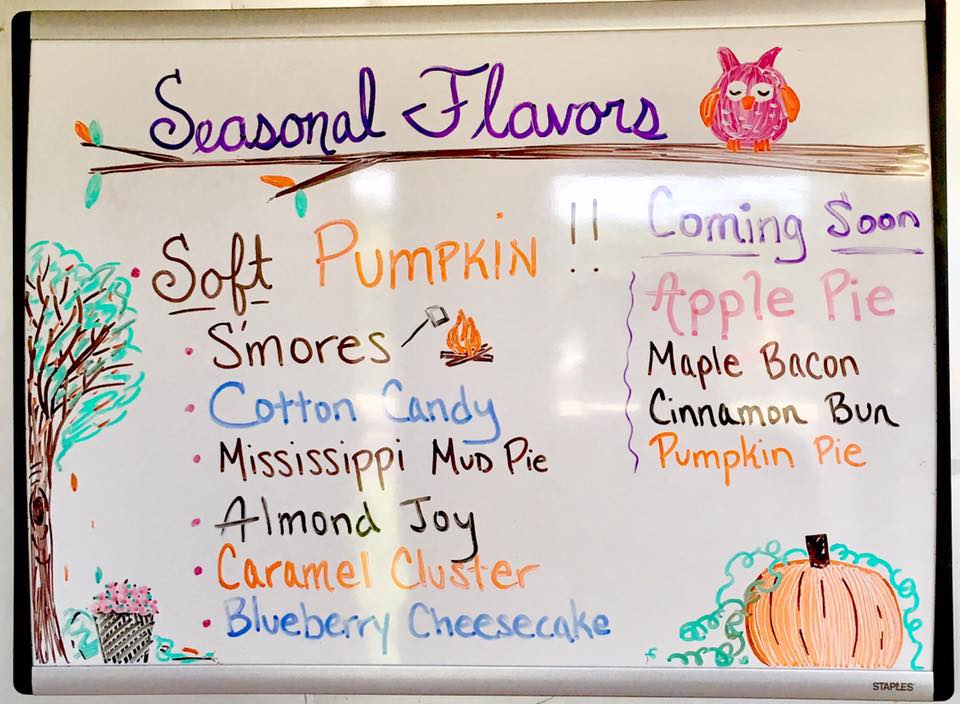 Seasonal Flavors
Soft Pumpkin !!
S'mores
Cotton Candy
Mississippi Mud Pie
Almond Joy
Caramel Cluster
Blueberry Cheesecake
Coming Soon
Apple Pie
Maple Bacon
Cinnamon Bun
Pumpkin Pie
STAPLES